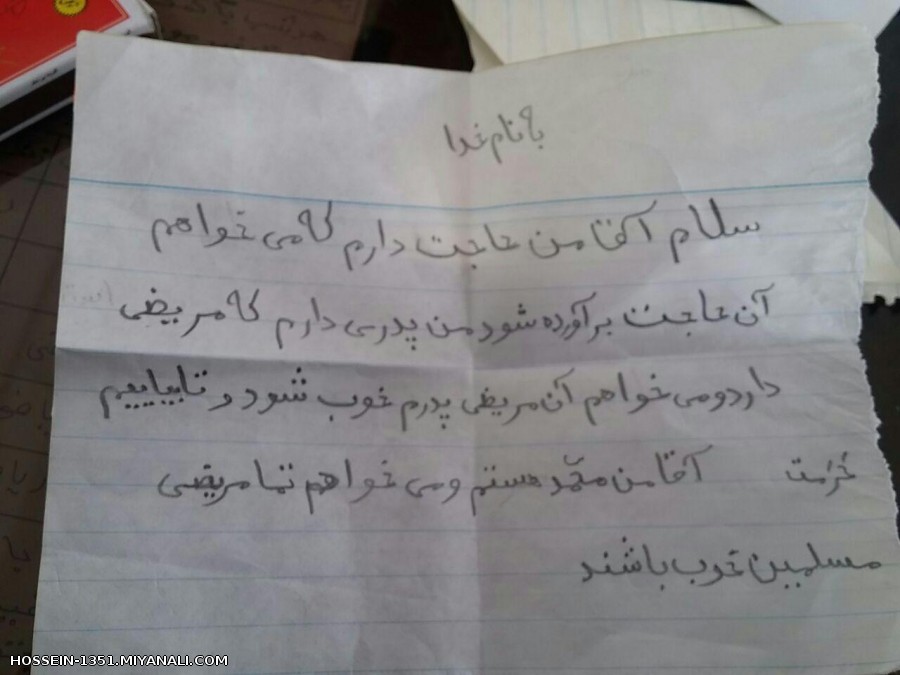 به نام خدا
سلام آقا من حاجت دارم که می خواهم
آن حاجت برآورده شود من پدری دارم که مریضی
دارد و می خواهم آن مریضی پدرم خوب شود و تا بیاییم
آقا من محمّد هستم و می خواهم تما مریضی
مسلمین خوب باشند
HOSSEIN-1351.MIYANALI.COM